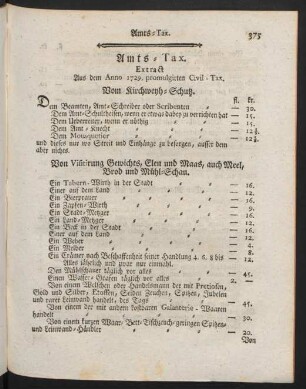 Amts-Tax. 375
Amts-Tax.
Extract
Aus dem Anno 1729. promulgirten Civil-Tax.
Vom Kirchweyh-Schutz.
fl. kr.
Dem Beamten, Amt-Schreiber oder Scribenten — 30.
Dem Amt-Schultheisen, wenn er etwas dabey zu verrichten hat — 15.
Dem Uebereiter, wenn er nöthig — 15.
Dem Amt-Knecht — 12½.
Dem Mousquetier — 12½.
und dieses nur wo Streit und Einhänge zu besorgen, ausser dem
aber nichts.
Von Visirung Gewichts, Elen und Maas, auch Meel,
Brod und Mühl-Schau.
Ein Tabern-Wirth in der Stadt — 16.
Einer auf dem Land — 12.
Ein Bierbrauer — 12.
Ein Zapfen-Wirth — 9.
Ein Stadt-Metzger — 16.
Ein Land-Metzger — 12.
Ein Beck in der Stadt — 16.
Einer auf dem Land — 12.
Ein Weber — 4.
Ein Melber — 8.
Ein Crämer nach Beschaffenheit seiner Handlung 4. 6. 8 bis — 12.
Alles jährlich und zwar nur einmahl.
Des Mühlbschauer täglich vor alles — 45.
Einer Wasser-Grafen täglich vor alles 2. —
Von einem Welschen oder Handelsmann der mit Pretiosen,
Gold und Silber, Etoffen, Seiden Zeuchen, Spitzen, Jubelen
und rarer Leinwand handelt, des Tags — 45.
Von einem der mit andern kostbaren Galanterie-Waaren
handelt — 30.
Von einem kurzen Waar-Bett-Tischzeuch-geringen Spitzen-
und Leinwand-Händler — 20.
Von